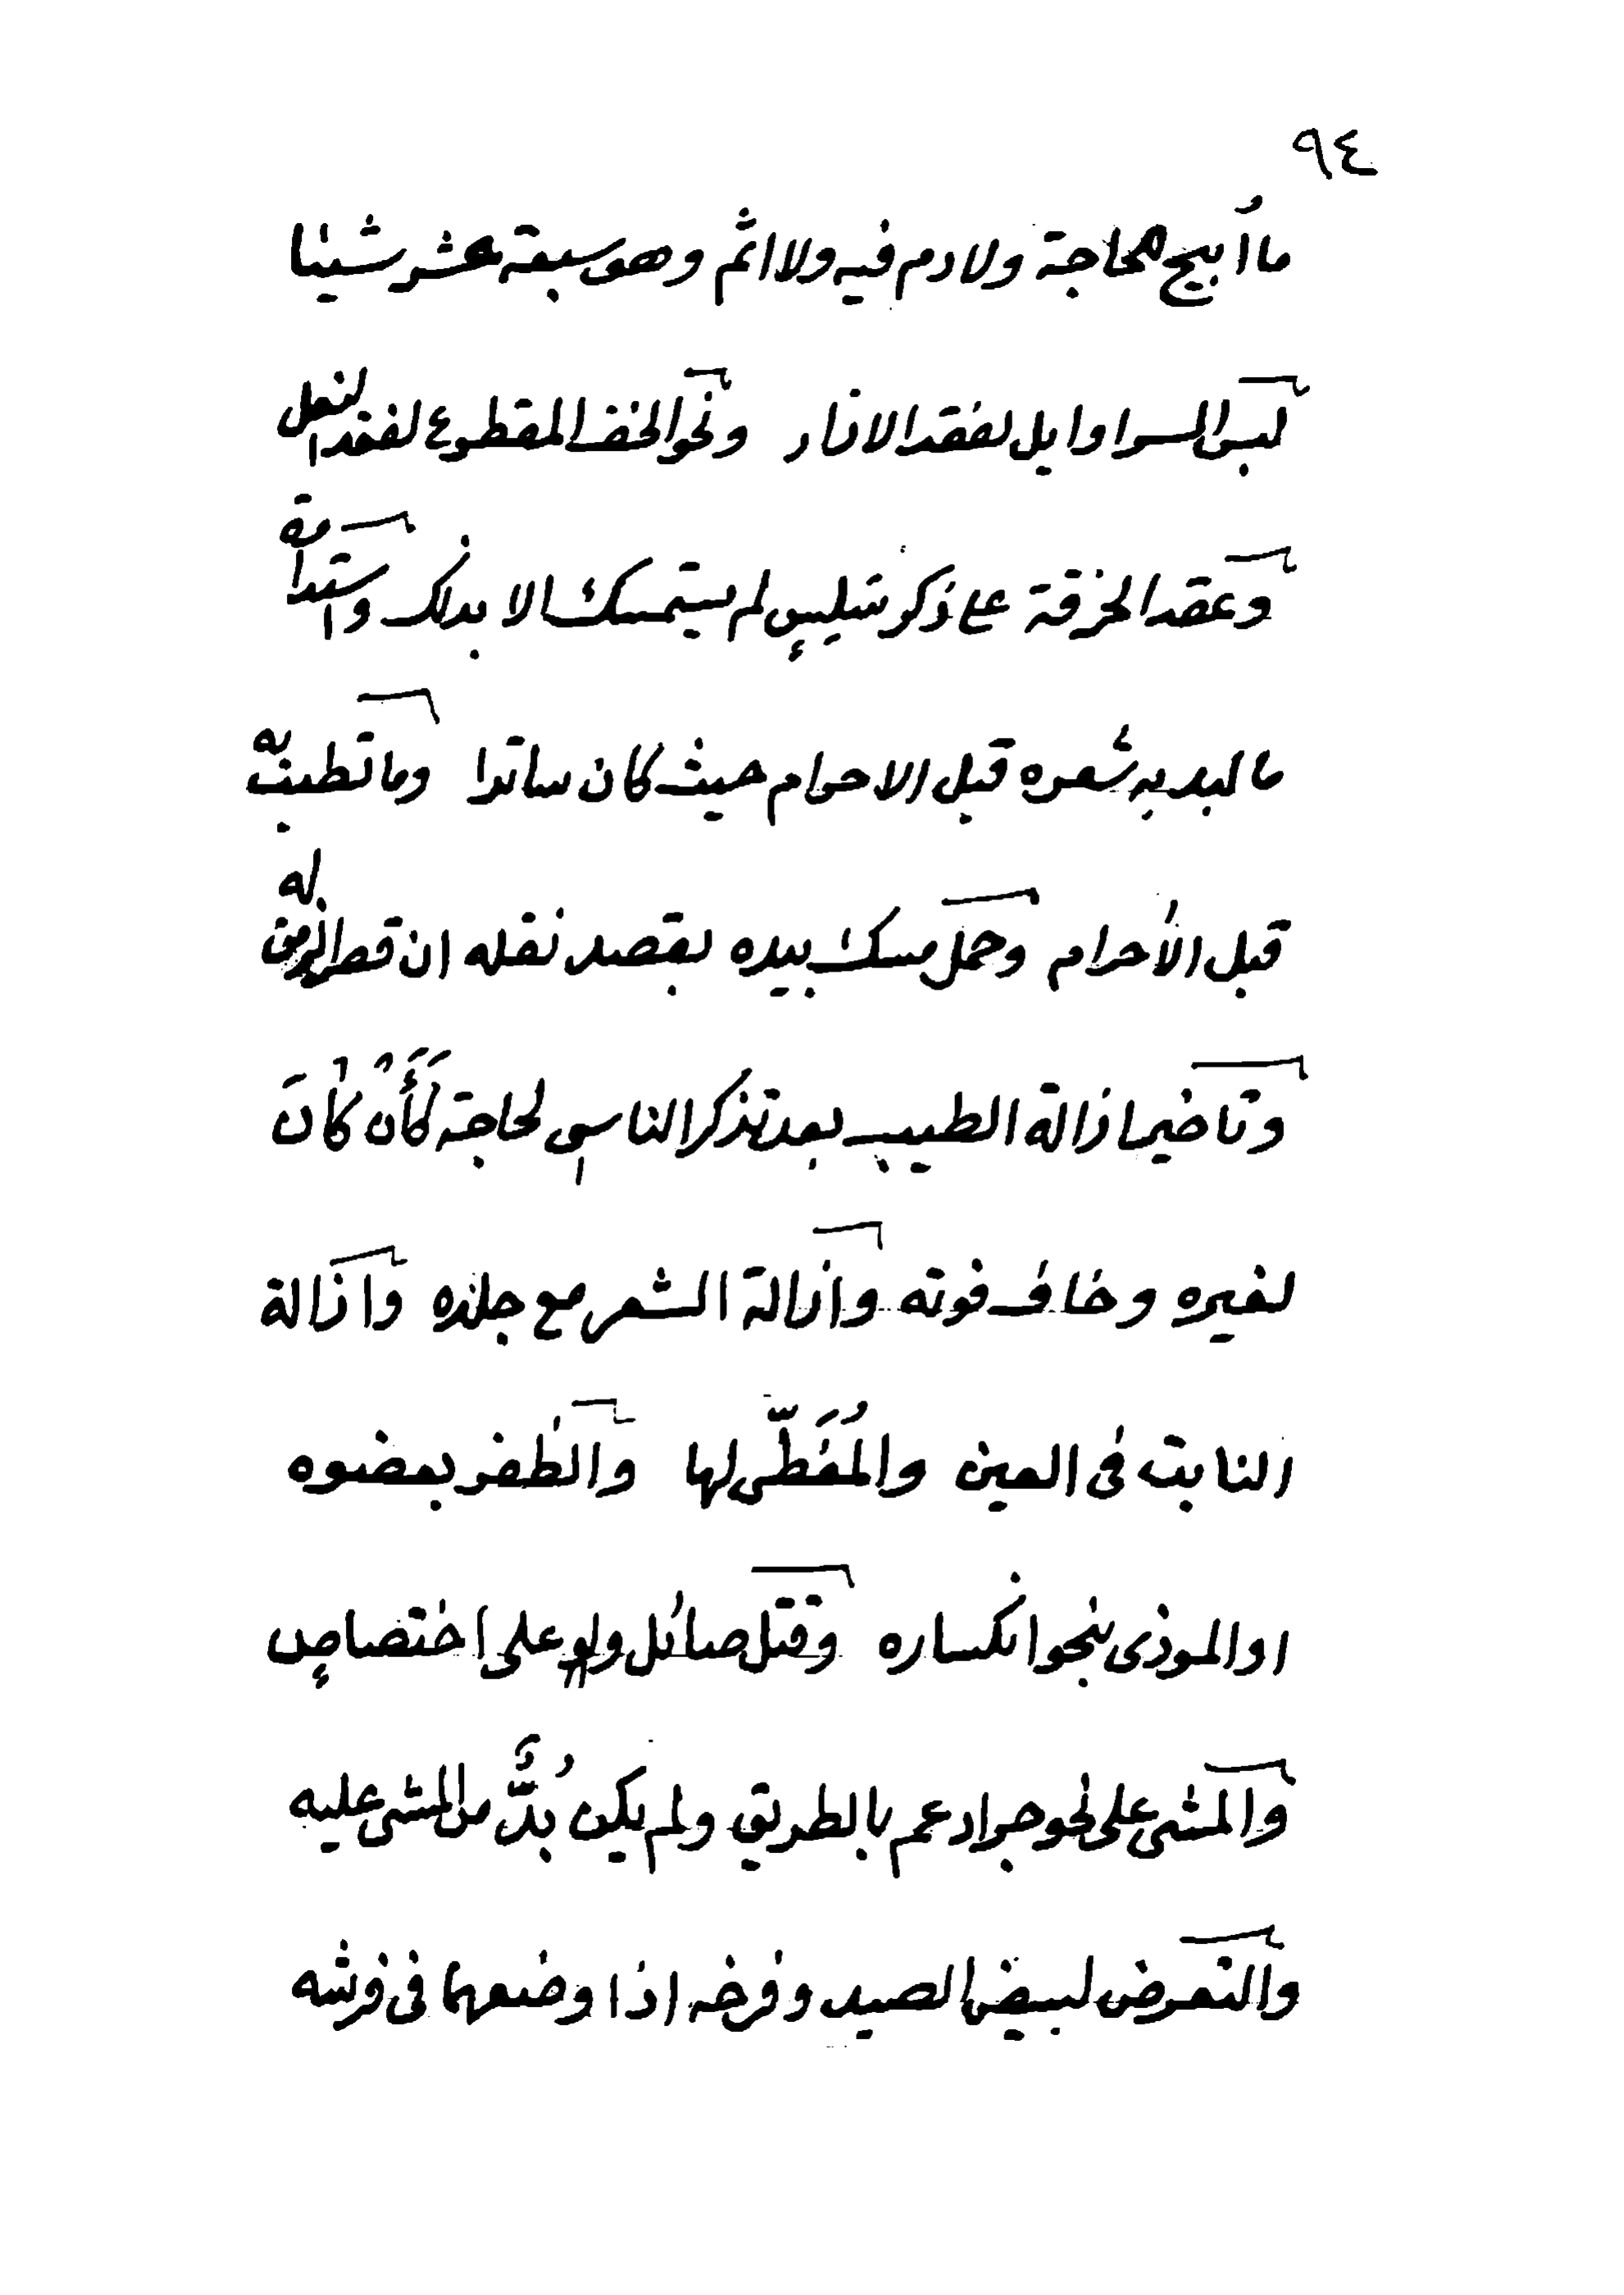 ٩٤
ما أبيح للحاجة ولا دم فيه ولا اثم وهو سبعة عشر شيئا
لبس السراوايل لفقد الازار ونحو الخف المقطوع لفقد النعل
وعقد الخرقة على ذكر سلس لم يستمسك الا بذلك واستدامة
ما لبد به شعره قبل الاحرام حيث كان ساترا وما تطيب به
قبل الأحرام وحمل مسك بيده بقصد نقله ان قصر الزمن له
وتاخير ازالة الطيب بعد تذكر الناسي لحاجة كَأَنْ كانَ
لغيره وخاف فوته وازالة الشعر مع جلده وازالة
النابت في العين والمُغَطِّى لها والظفر بعضوه
او الموذى بنحو انكساره وقتل صائل ولو على إختصاصٍ
والمشى على نحو جراد عم بالطريق ولم يكن بُدٌّ من المشى عليه
والتعرض لبيض الصيد وفرخه اذا وضعهما فى فرشه